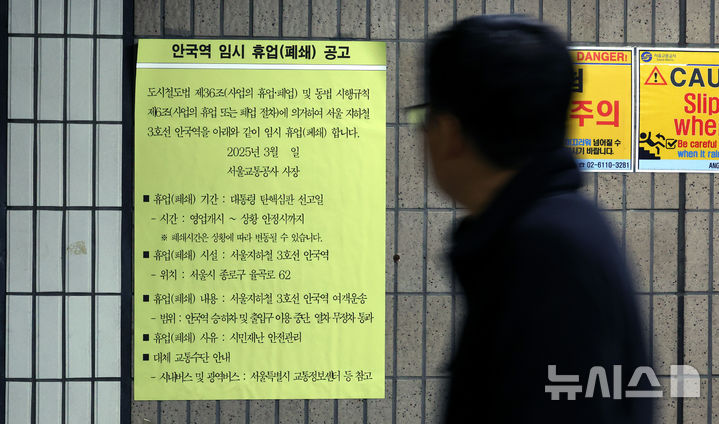 안국역 임시 휴업(폐쇄) 공고
도시철도법 제36조(사업의 휴업·폐업) 및 동법 시행규칙
제6조(사업의 휴업 또는 폐업 절차)에 의거하여 서울 지하철
3호선 안국역을 아래와 같이 임시 휴업(폐쇄) 합니다.
2025년 3월 일
서울교통공사 사장
■ 휴업(폐쇄) 기간 : 대통령 탄핵심판 선고일
- 시간 : 영업개시 ~ 상황 안정시까지
※ 폐쇄시간은 상황에 따라 변동될 수 있습니다.
■ 휴업(폐쇄) 시설 : 서울지하철 3호선 안국역
- 위치 : 서울시 종로구 율곡로 62
■ 휴업(폐쇄) 내용 : 서울지하철 3호선 안국역 여객운송
- 범위 : 안국역 승하차 및 출입구 이용 중단, 열차 무정차 통과
■ 휴업(폐쇄) 사유 : 시민재난 안전관리
■ 대체 교통수단 안내
- 시내버스 및 광역버스 : 서울특별시 교통정보센터 등 참고
DANGER!
주의
넘어질 수
시기 바랍니다
☎ 02-6110-
서울교통공사
CAU
Slip
whe
Be careful
when it rain
ANG
뉴시스